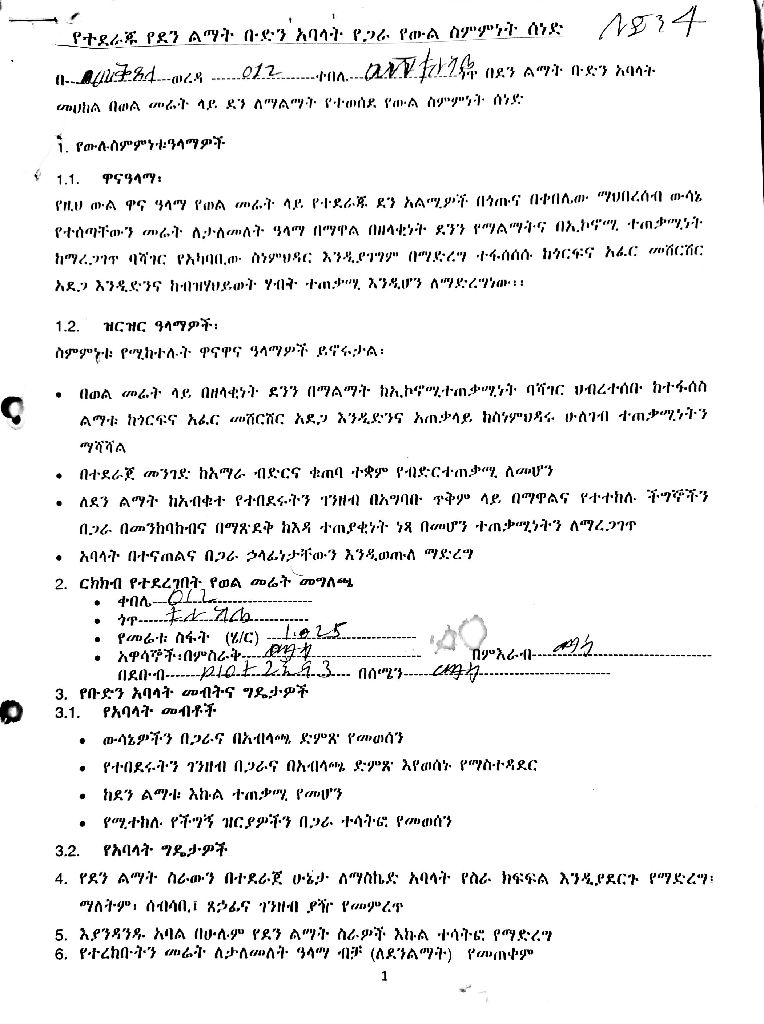 የተደራጁ የደን ልማት ቡድን አባላት የጋራ የውል ስምምነት ሰነድ
በ ወረዳ 012 ተበሌ ጥ በደን ልማት ቡድን አባላት
መሀከል በወል መሬት ላይ ደን ለማልማት የተወሰደ የውል ስምምነት ሰነድ
1. የውሉስምምነቱዓላማዎች
1.1. ዋናዓላማ፡
የዚህ ውል ዋና ዓላማ የወል መሬት ላይ የተደራጁ ደን አልሚዎች በጎጡና በቀበሌው ማህበረሰብ ውሳኔ
የተሰጣቸውን መሬት ለታለመለት ዓላማ በማዋል በዘላቂነት ደንን የማልማትና በኢኮኖሚ ተጠቃሚነት
ከማረጋገጥ ባሻገር የአካባቢው ስነምህዳር እንዲያገግም በማድረግ ተፋሰሰሱ ከጎርፍና አፈር መሸርሸር
አደጋ እንዲድንና ከብዝሃህይወት ሃብት ተጠቃሚ እንዲሆን ለማድረግነው፡፡
1.2. ዝርዝር ዓላማዎች፡
ስምምነቱ የሚከተሉት ዋናዋና ዓላማዎች ይኖሩታል፡
• በወል መሬት ላይ በዘላቂነት ደንን በማልማት ከኢኮኖሚተጠቃሚነት ባሻገር ህብረተሰቡ ከተፋሰስ
ልማቱ ከጎርፍና አፈር መሸርሸር አደጋ እንዲድንና አጠቃላይ ከስነምህዳሩ ሁለገብ ተጠቃሚነትን
ማሻሻል
• በተደራጀ መንገድ ከአማራ ብድርና ቁጠባ ተቋም የብድርተጠቃሚ ለመሆን
• ለደን ልማት ከአብቁተ የተበደሩትን ገንዘብ በአግባቡ ጥቅም ላይ በማዋልና የተተከሉ ችግኞችን
በጋራ በመንከባከብና በማጽደቅ ከእዳ ተጠያቂነት ነጻ በመሆን ተጠቃሚነትን ለማረጋገጥ
• አባላት በተናጠልና በጋራ ኃላፊነታቸውን እንዲወጡለ ማድረግ
2. ርክክብ የተደረገበት የወል መሬት መግለጫ
• ቀበሌ 012
• ጎጥ
• የመሬቱ ስፋት (ሄ/ር) 1.025
• አዋሳኞች፡በምስራቅ በምእራብ
በደቡብ በሰሜን
3. የቡድን አባላት መብትና ግዴታዎች
3.1. የአባላት መብቶች
• ውሳኔዎችን በጋራና በአብላጫ ድምጽ የመወሰን
• የተበደሩትን ገንዘብ በጋራና በአብላጫ ድምጽ እየወሰኑ የማስተዳደር
• ከደን ልማቱ እኩል ተጠቃሚ የመሆን
• የሚተከሉ የችግኝ ዝርያዎችን በጋራ ተሳትፎ የመወሰን
3.2. የአባላት ግዴታዎች
4. የደን ልማት ስራውን በተደራጀ ሁኔታ ለማስኬድ አባላት የስራ ክፍፍል እንዲያደርጉ የማድረግ፡
ማለትም፡ ሰብሳቢ፤ ጸኃፊና ገንዘብ ያዥ የመምረጥ
5. እያንዳንዱ አባል በሁሉም የደን ልማት ስራዎች እኩል ተሳትፎ የማድረግ
6. የተረከቡትን መሬት ለታለመለት ዓላማ ብቻ (ለደንልማት) የመጠቀም
1